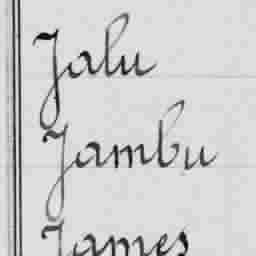 Jalu
Jambu
James